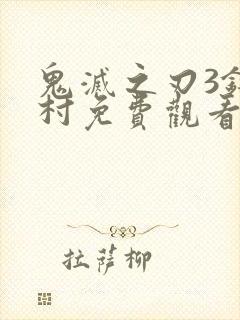 鬼滅之刃3
村免費觀看
拉薩柳